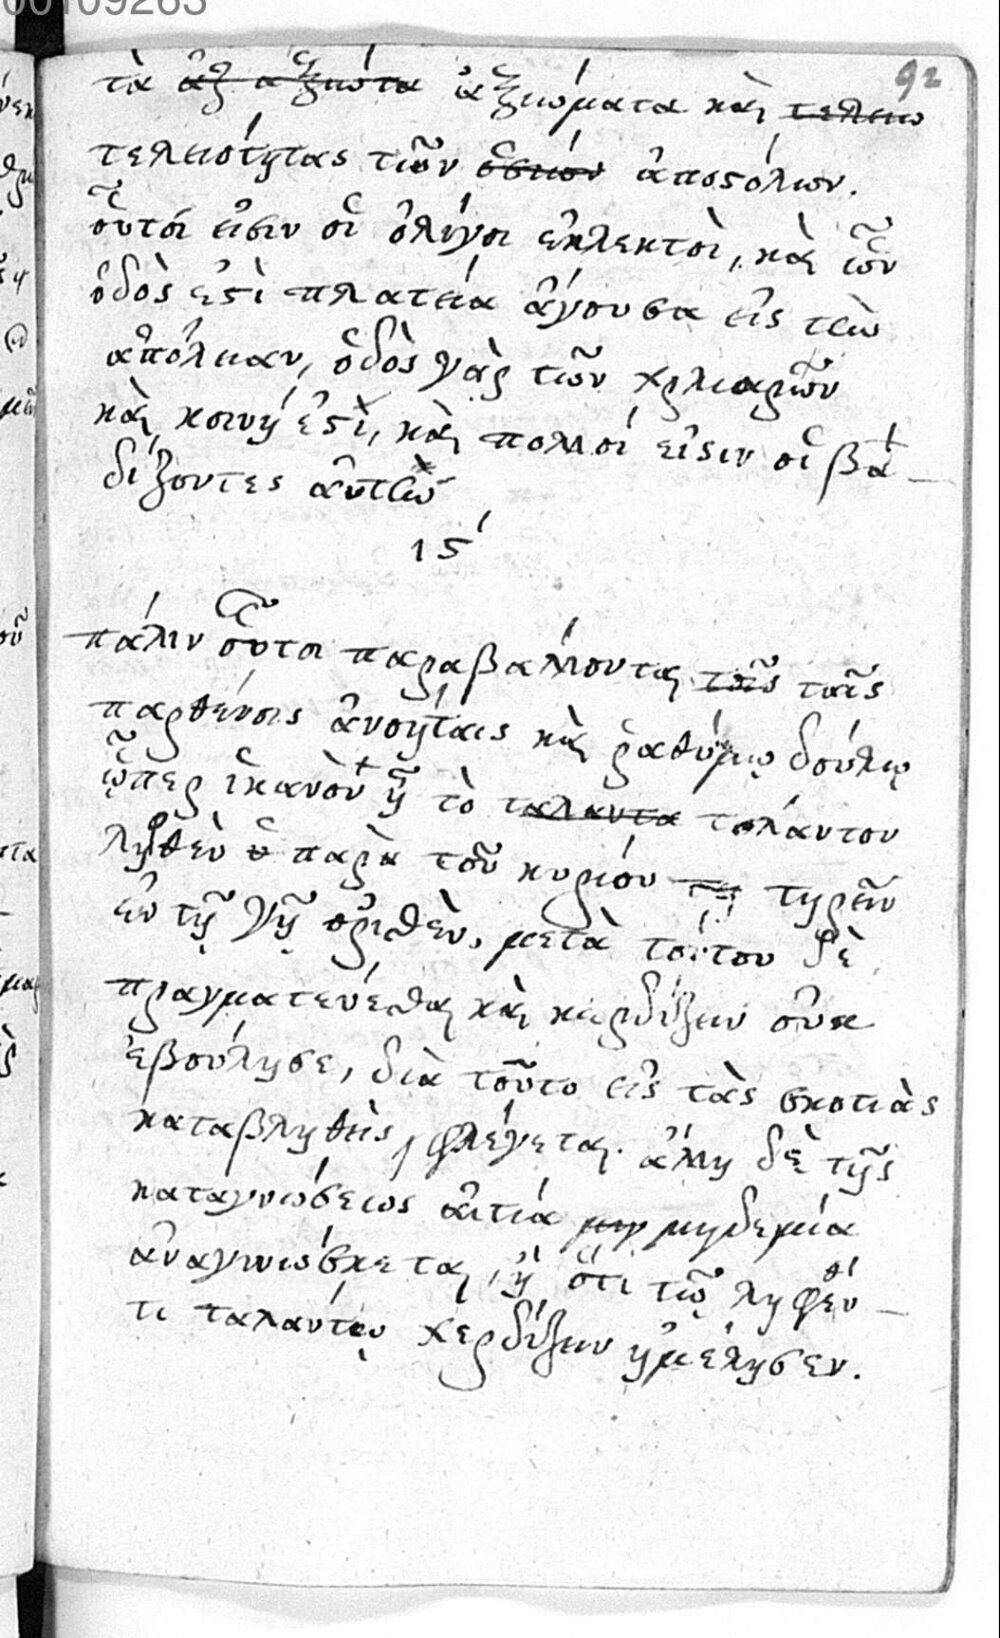 00109263
92
τὰ ἀξ ἀξιώτα ἀξιώματα καὶ τελειω
τελειότητας τῶν ὁσιών ἀποστόλων.
οὗτοί εἰσιν οἱ ὀλίγοι ἐκλεκτοὶ, καὶ ὧν
ὁδὸς ἐστὶ πλατεία ἄγουσα εἰς τὴν
ἀπόλειαν, ὁδὸς γὰρ τῶν χλιαρῶν
καὶ κοινή ἐστὶ, καὶ πολλοί εἰσιν οἱ βα-
δίζοντες αὐτὴν
ις΄
πάλιν οὗτοι παραβάλλονται τοῖς ταῖς
παρθένοις ἀνοήταις καὶ ῥαθύμῳ δούλῳ
ᾧπερ ἱκανὸν ἦ τὸ ταλαντα τάλαντον
ληφθὲν παρὰ τοῦ κυρίου τηρεῖν
ἐν τῇ γῇ κριθὲν, μετὰ τούτου δὲ
πραγματεύεσθαι καὶ κερδίζειν οὐκ
ἐβούλησε, διὰ τοῦτο εἰς τὰς σκοτιὰς
καταβληθεὶς, φλέγεται. ἄλλη δὲ τῆς
καταγνώσεως αἰτία μην μηδεμία
ἀναγινώσκεται, ἢ ὅτι τῷ ληφθέν-
τι ταλάντῳ χερδίζειν ἠμέλησεν.